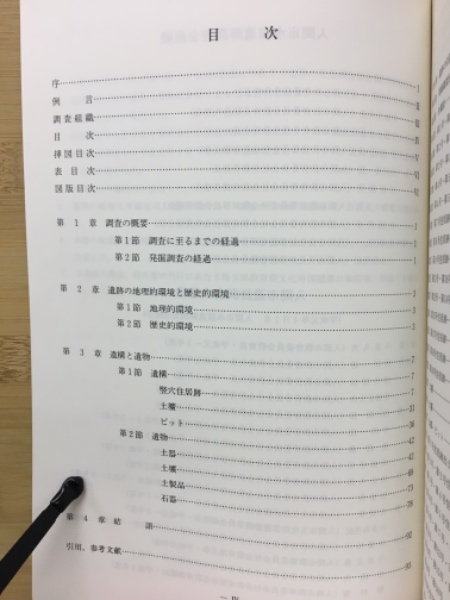 目　次
序……Ⅰ
例　言……Ⅱ
調査組織……Ⅲ
目　次……Ⅳ
挿図目次……Ⅵ
表目次
図版目次
第１章　調査の概要……1
第１節　調査に至るまでの経過……1
第２節　発掘調査の経過……1
第２章　遺跡の地理的環境と歴史的環境……3
第１節　地理的環境……3
第２節　歴史的環境……3
第３章　遺構と遺物……7
第１節　遺構……7
竪穴住居跡……7
土壙……31
ピット……36
第２節　遺物……42
土器……42
土壙……68
土製品……73
石器……78
第４章　結　語……90
引用、参考文献……93